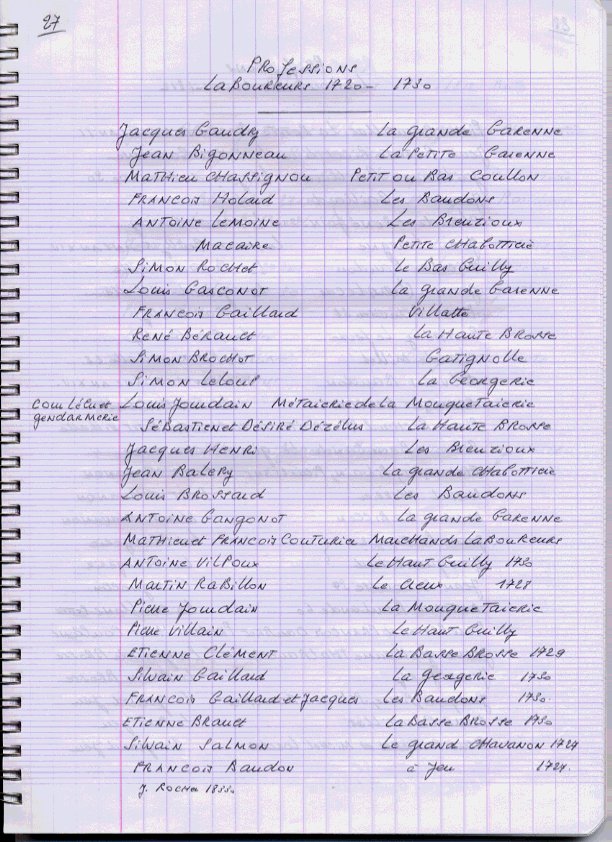 27
PROFESSIONS
LABOUREURS 1720 - 1730
Jacques Gaudry La grande Garenne
Jean Bigonneau La Petite Garenne
Mathieu Chassignou Petit ou Bas Coullon
François Holard Les Baudons
Antoine Lemoine Les Breuzioux
Macaire Petite Chabotterie
Simon Rochet Le Bas Guilly
Louis Gasconot La grande Garenne
François Gaillard Villatte
René Bérault La Haute Brosse
Simon Brochot Gatignolle
Simon Leloup La Georgerie
Louis Jourdain Métairie de la Mouquetaierie
gendarmerie Sébastien et Désiré Dézélus La Haute Brosse
Jacques Henri Les Breuzioux
Jean Balery La grande Chabotterie
Louis Brossard Les Baudons
Antoine Gangonot La grande Garenne
Mathieu et François Couturier Marchands Laboureurs
Antoine Vilpoux Le Haut Guilly 1730
Martin Rabillon Le Creux 1728
Pierre Jourdain La Mouquetaierie
Pierre Villain Le Haut Guilly
Etienne Clément La Basse Brosse 1729
Silvain Gaillard La Georgerie 1730
François Gaillard et Jacques Les Baudons 1730.
Etienne Brault La Basse Brosse 1730
Silvain Salmon Le grand Chavanon 1727
François Baudon à Jeu 1727.
J. Rocher 1855.